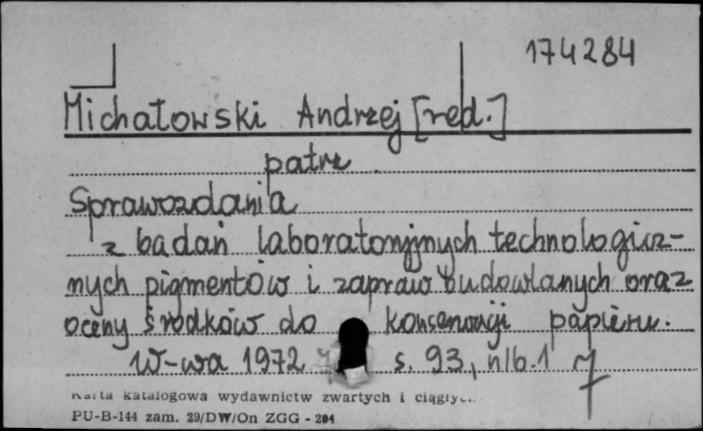 174284
Michałowski Andrzej [red.]
patrz
Sprawozdania
z badań laboratoryjnych technologicz-
nych pigmentów i zapraw budowlanych oraz
oceny środków do konserwacji papieru.
W-wa 1972 s. 93, nlb. 1
Karta katalogowa wydawnictw zwartych i ciągłych
PU-B-144 zam. 29/DW/On ZGG - 284